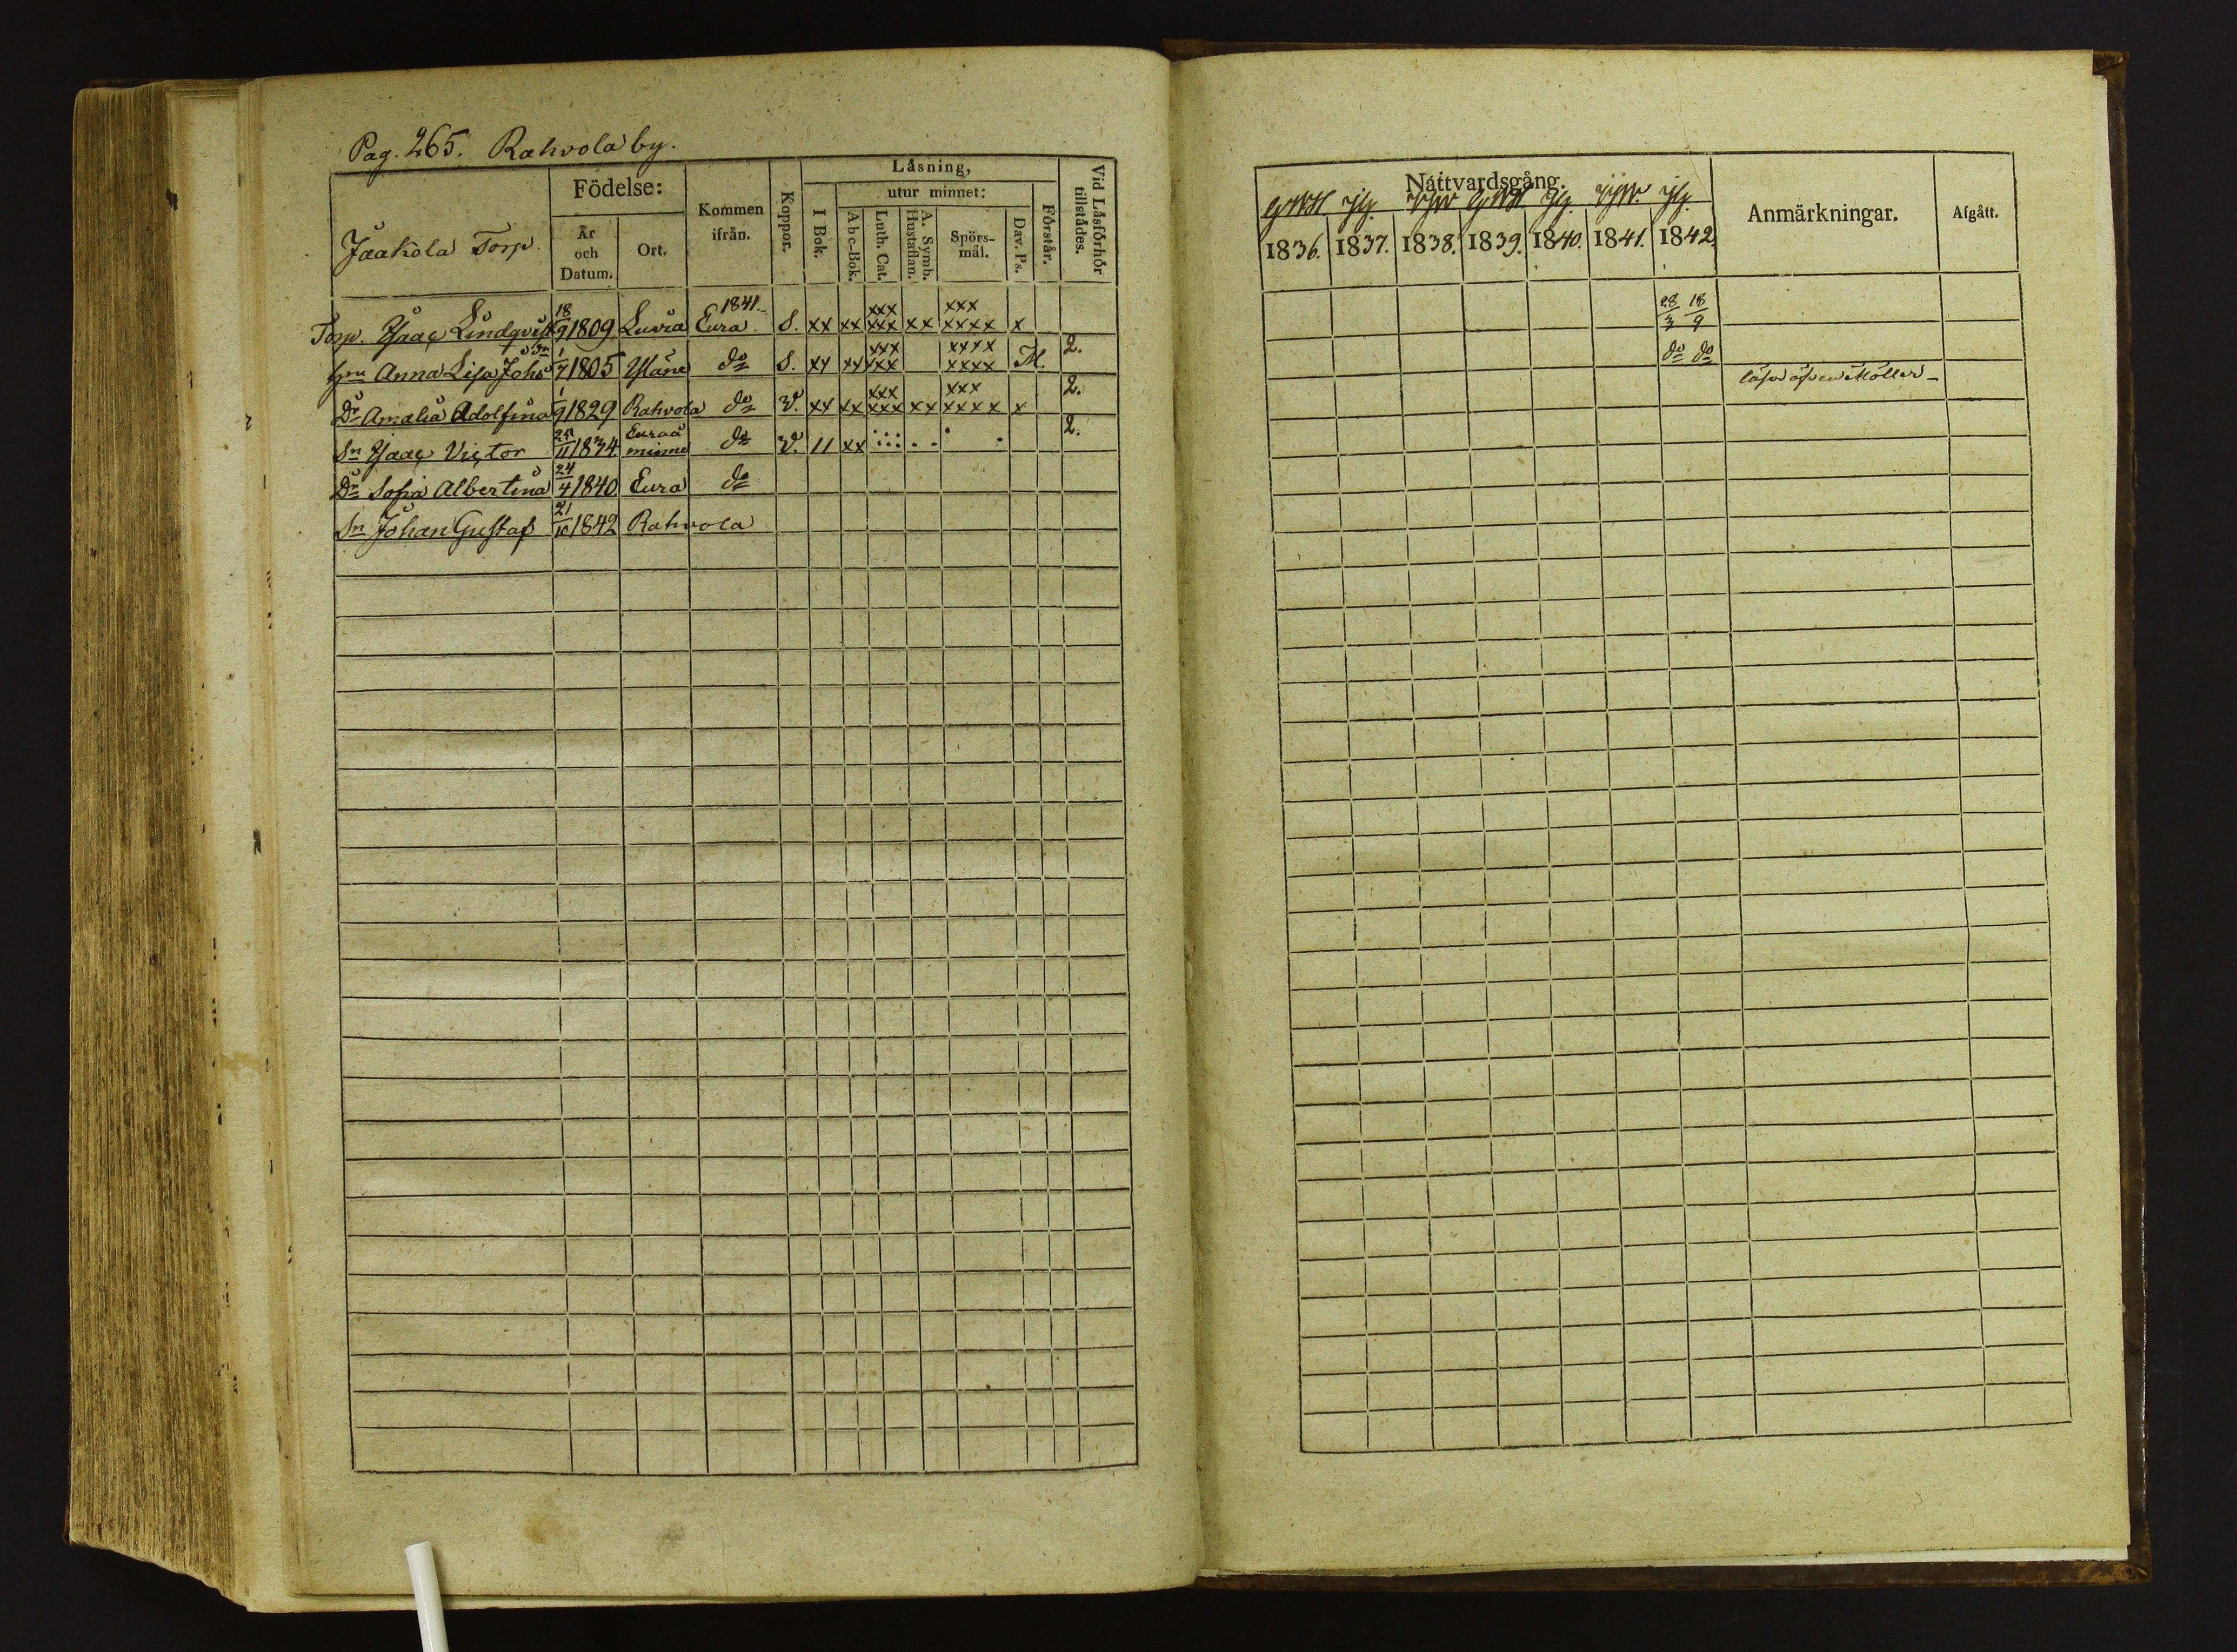 Pag. 265. Rahvola by.
Jaakola Torp.
Födelse:
År och Datum.
Ort.
Kommen ifrån.
Koppor.
Läsning,
I Bok.
utur minnet:
Abc-Bok.
Luth. Cat.
A. Symb. Hustaflan.
Spörsmål.
Dav. Ps.
Förstår.
Vid Läsförhör tillstädes.
Torp. Isaac Lindqvist 18/9 1809 Luvia Eura 1841. S. xx xx xxx xxx xx xxx xxxx x
Hu Anna Lisa Johsdr 1/7 1805 Yläne do S. xx xx xxx xxx xxxx xxxx M. 2.
Dr Amalia Adolfina 1/9 1829 Rahvola do V. xx xx xxx xxx xx xxx xxxx x 2.
Sn Isaac Victor 25/11 1834 Euraåminne do V. 11 xx 2.
Dr Sofia Albertina 24/4 1840 Eura do
Sn Johan Gustaf 21/10 1842 Rahvola
Nattvardsgång.
1836. 1837. 1838. 1839. 1840. 1841. 1842.
Anmärkningar.
Afgått.
28/3 18/9
do do
läser äfven Möller